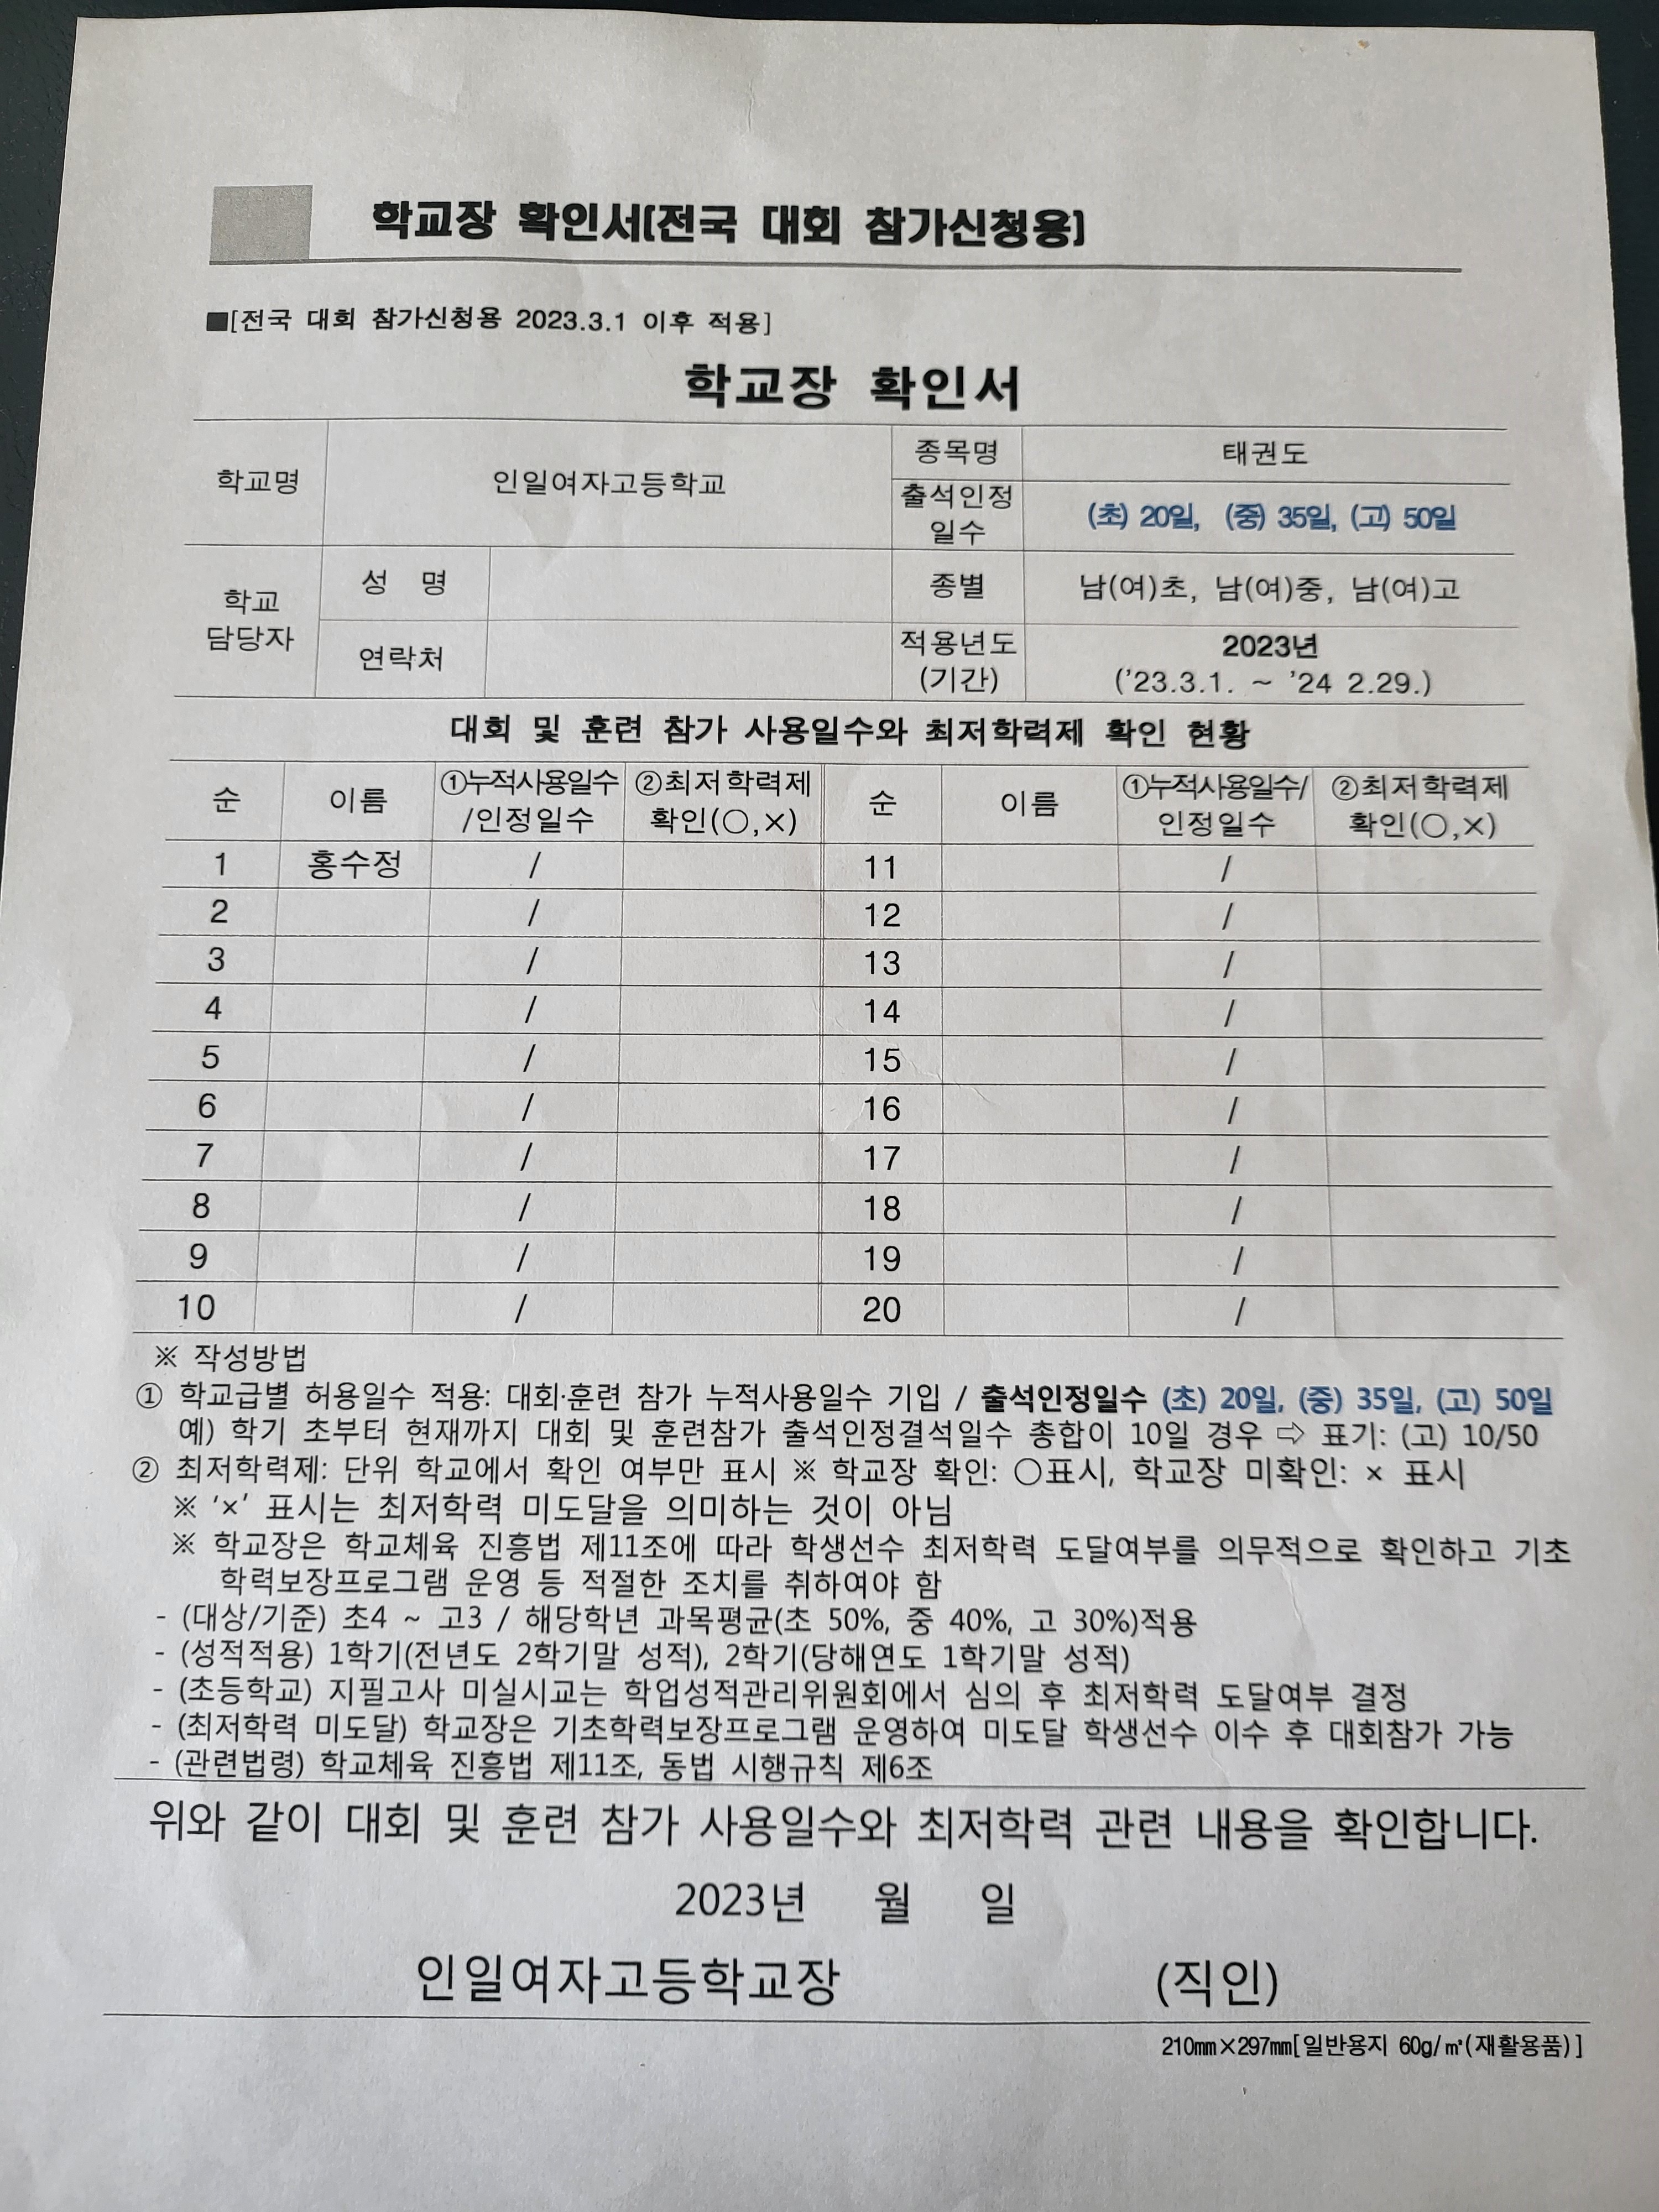 학교장 확인서(전국 대회 참가신청용)
■[전국 대회 참가신청용 2023.3.1 이후 적용]
학교장 확인서
학교명 인일여자고등학교 종목명 태권도
출석인정
일수 (초) 20일, (중) 35일, (고) 50일
학교
담당자 성 명 종별 남(여)초, 남(여)중, 남(여)고
연락처 적용년도
(기간) 2023년
('23.3.1. ~ '24 2.29.)
대회 및 훈련 참가 사용일수와 최저학력제 확인 현황
순 이름 ①누적사용일수
/인정일수 ②최저학력제
확인(○,×) 순 이름 ①누적사용일수/
인정일수 ②최저학력제
확인(○,×)
1 홍수정 / 11 /
2 / 12 /
3 / 13 /
4 / 14 /
5 / 15 /
6 / 16 /
7 / 17 /
8 / 18 /
9 / 19 /
10 / 20 /
※ 작성방법
① 학교급별 허용일수 적용: 대회·훈련 참가 누적사용일수 기입 / 출석인정일수 (초) 20일, (중) 35일, (고) 50일
예) 학기 초부터 현재까지 대회 및 훈련참가 출석인정결석일수 총합이 10일 경우 ⇨ 표기: (고) 10/50
② 최저학력제: 단위 학교에서 확인 여부만 표시 ※ 학교장 확인: ○표시, 학교장 미확인: × 표시
※ '×' 표시는 최저학력 미도달을 의미하는 것이 아님
※ 학교장은 학교체육 진흥법 제11조에 따라 학생선수 최저학력 도달여부를 의무적으로 확인하고 기초
학력보장프로그램 운영 등 적절한 조치를 취하여야 함
- (대상/기준) 초4 ~ 고3 / 해당학년 과목평균(초 50%, 중 40%, 고 30%)적용
- (성적적용) 1학기(전년도 2학기말 성적), 2학기(당해연도 1학기말 성적)
- (초등학교) 지필고사 미실시교는 학업성적관리위원회에서 심의 후 최저학력 도달여부 결정
- (최저학력 미도달) 학교장은 기초학력보장프로그램 운영하여 미도달 학생선수 이수 후 대회참가 가능
- (관련법령) 학교체육 진흥법 제11조, 동법 시행규칙 제6조
위와 같이 대회 및 훈련 참가 사용일수와 최저학력 관련 내용을 확인합니다.
2023년 월 일
인일여자고등학교장 (직인)
210㎜×297㎜[일반용지 60g/㎡(재활용품)]